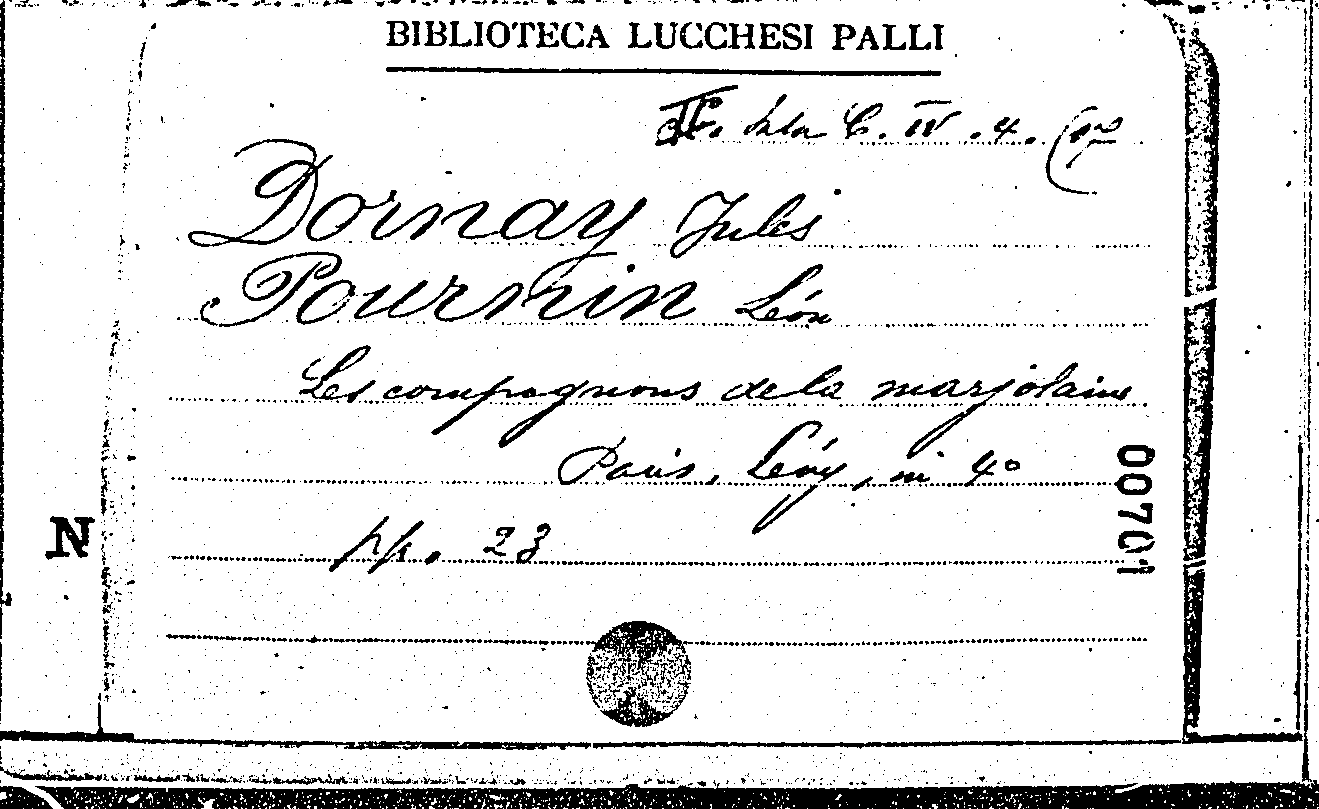 BIBLIOTECA LUCCHESI PALLI
IIª. Sala C. IV. 4.
Dornay Jules
Pournin Léon
Les compagnons de la marjolaine
Paris, Lévy, in 4°
pp. 23
N
00701